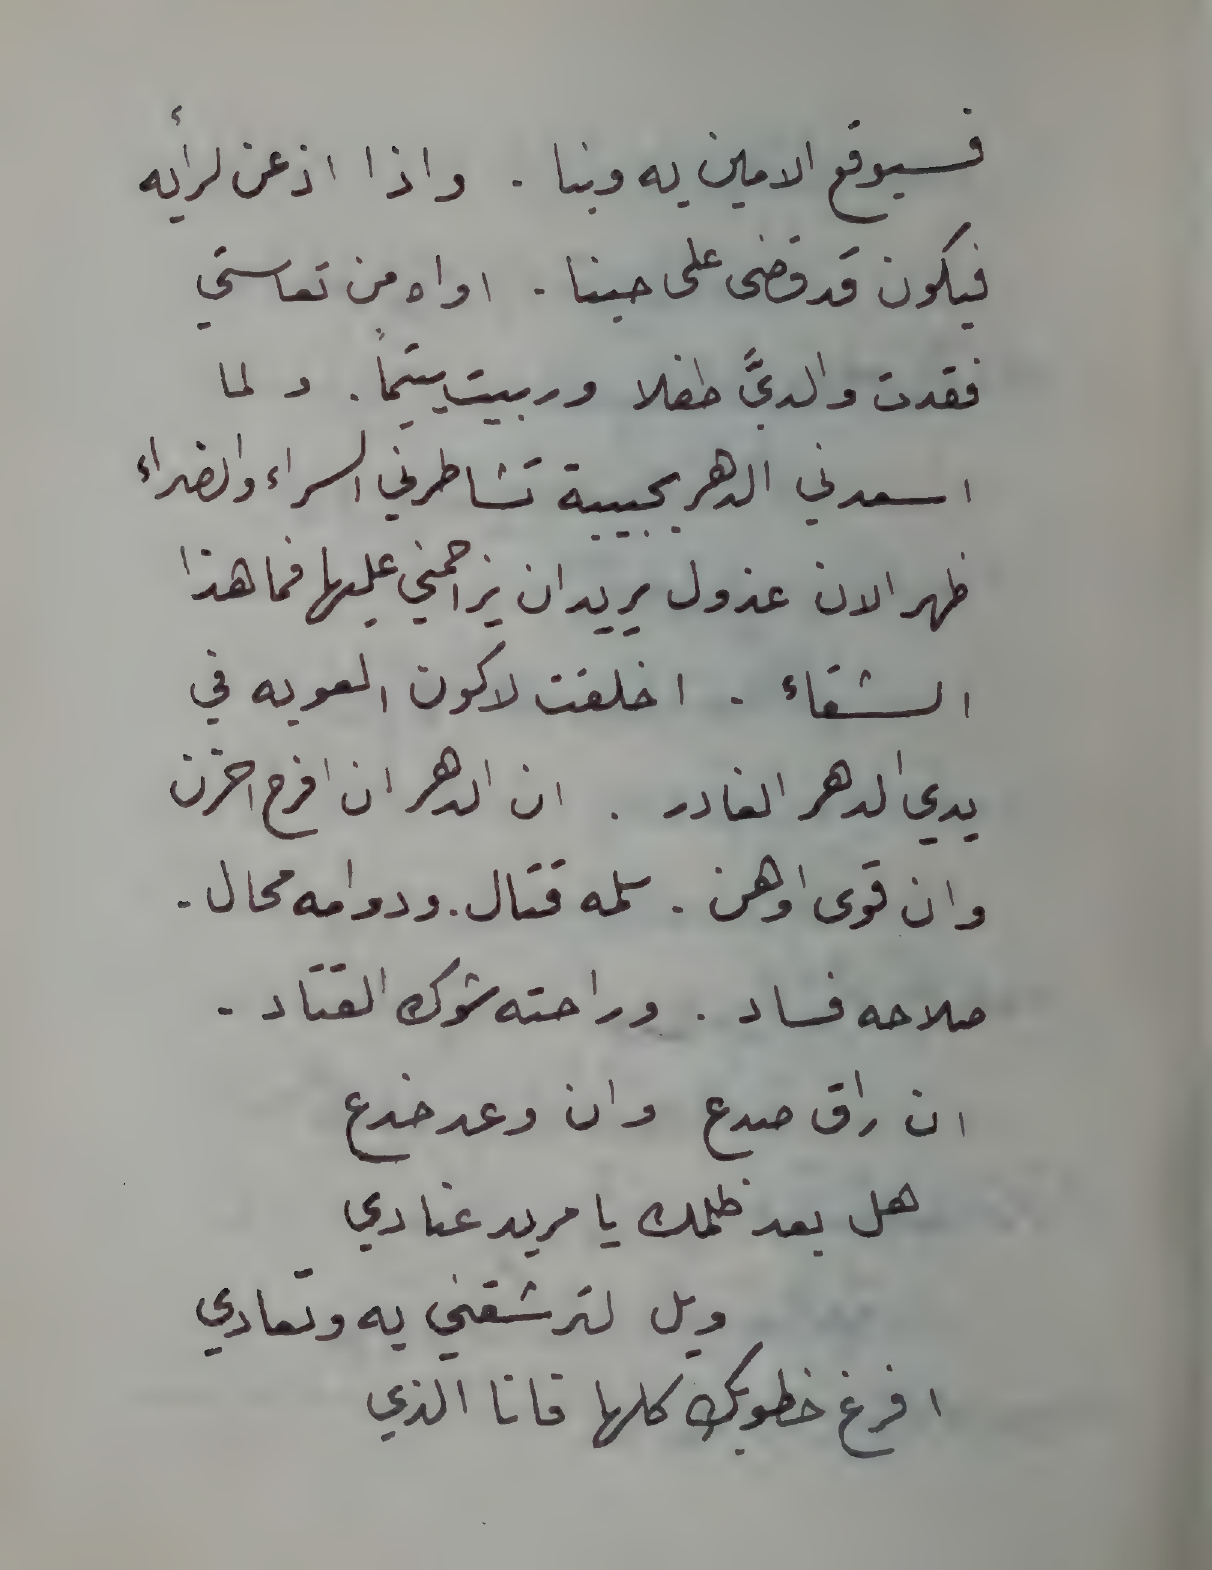 فسيوقع الامين به وبنا . واذا اذعن لرأيه
فيكون قد قضى على حبنا . اواه من تعاستي
فقدت والديَّ طفلا وربيت يتيماً . و لما
اسعدني الدهر بحبيبة تشاطرني السراء والضراء
ظهر الان عذول يريد ان يزاحمني عليها فما هذا
الشقاء . اخلقت لاكون العوبه في
يدي الدهر الغادر . ان الدهر ان افرح احزن
وان قوى اوهن . سلمه قتال . ودوامه محال .
صلاحه فساد . وراحته شوك القتاد .
ان راق صدع وان وعد خدع
هل بعد ظلمك يا مريد عنادي
ويل لترشقني به وتعادي
افرغ خطوبك كلها فانا الذي